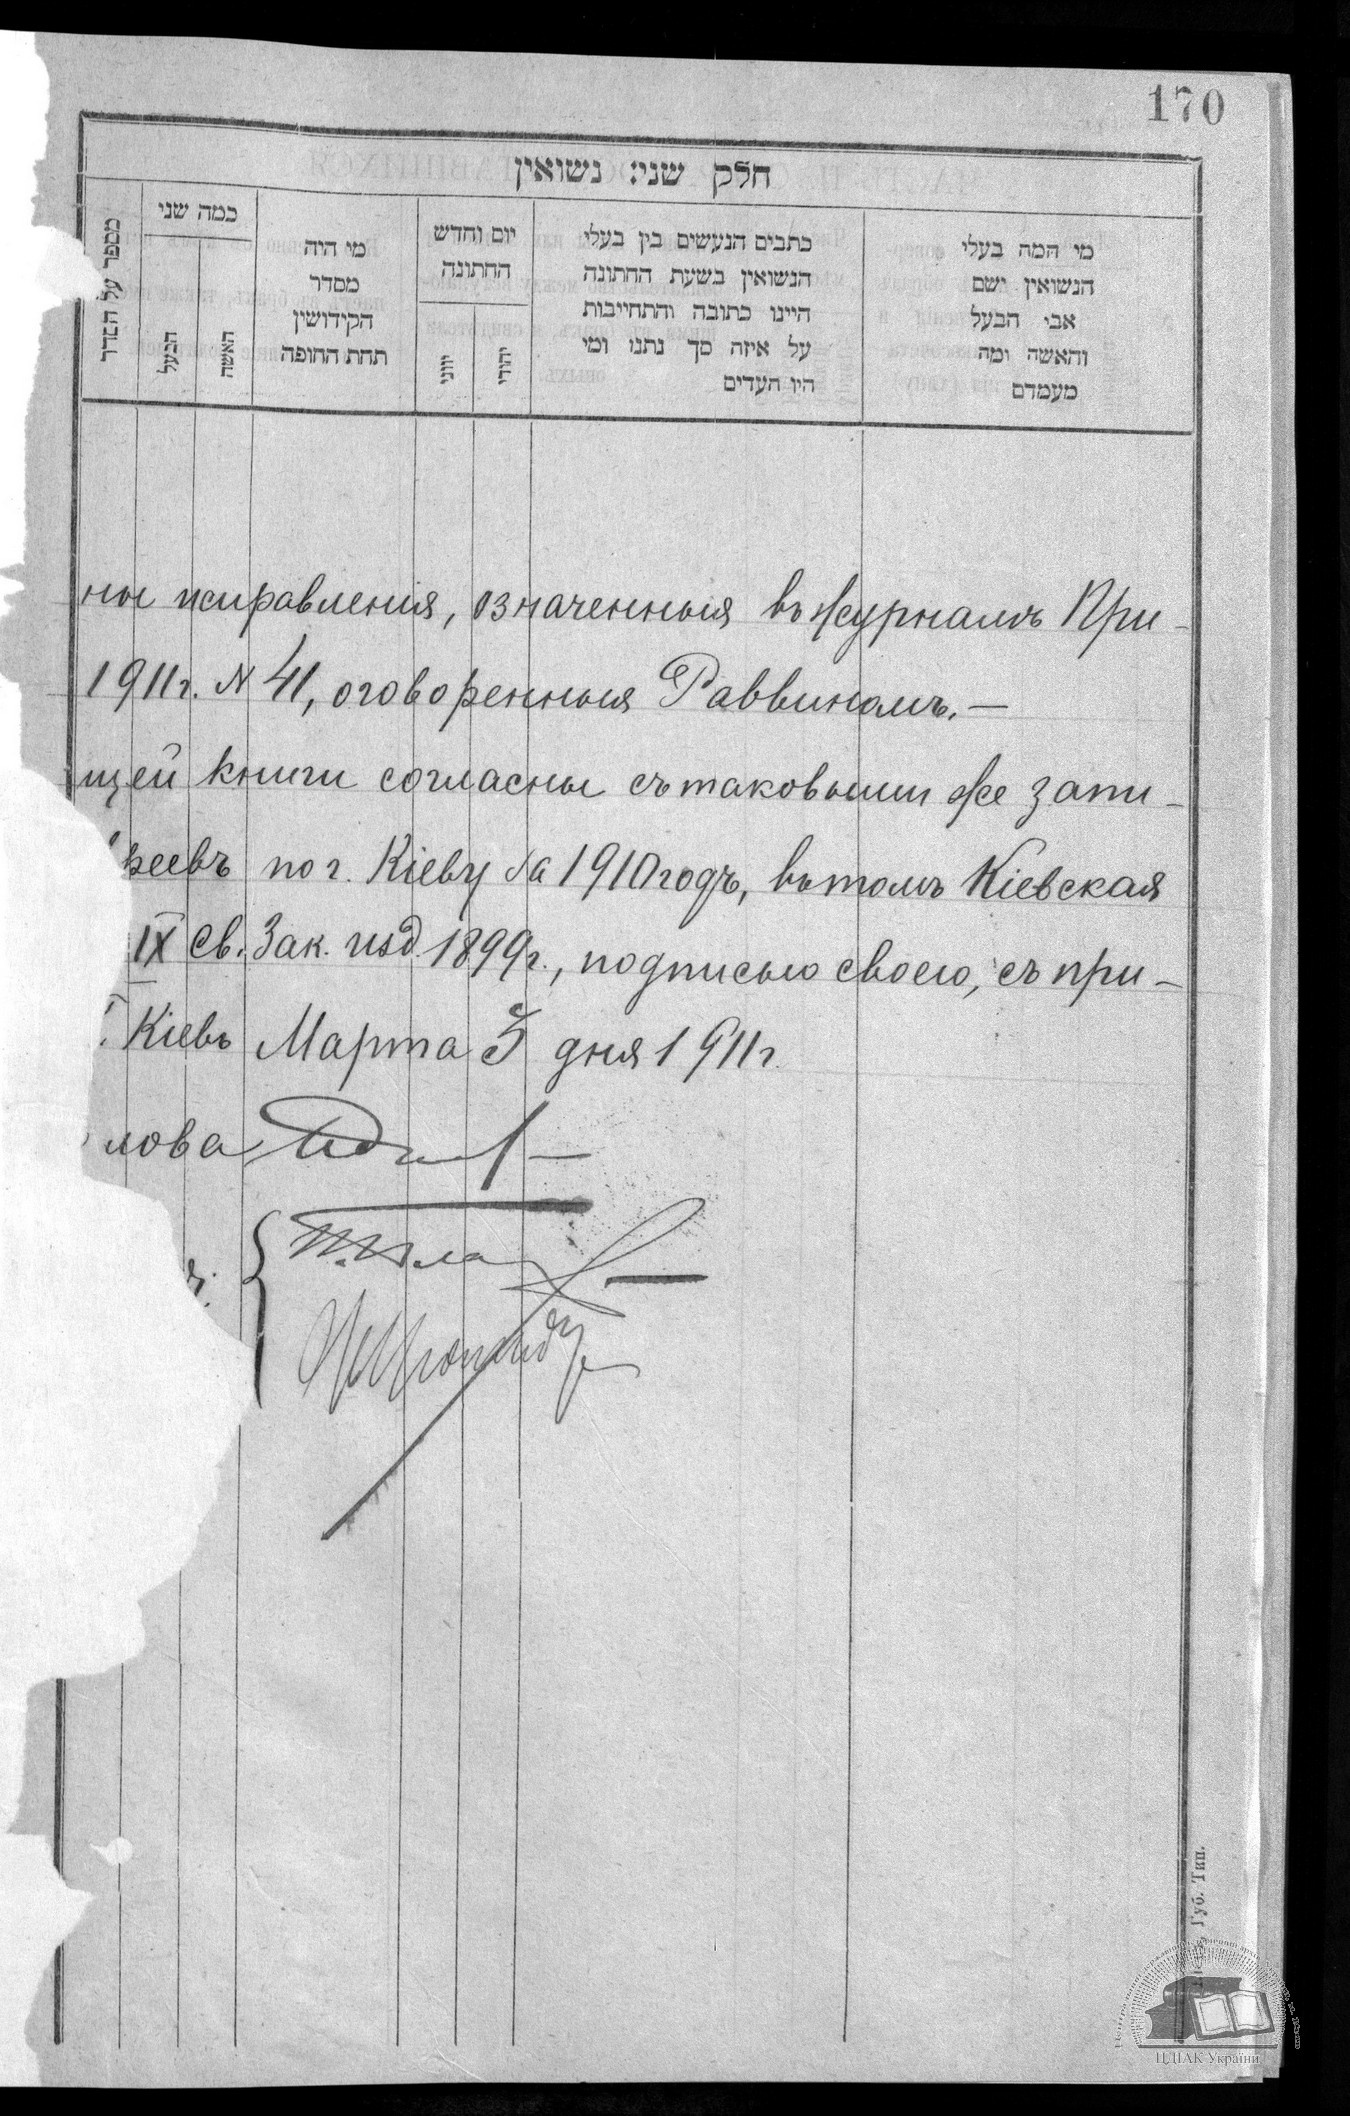 170
חלק שני: נשואין
מספר על הסדר
כמה שני
הבעל
האשה
מי היה
מסדר
הקידושין
תחת החופה
יום וחדש
החתונה
יווני
יהודי
כתבים הנעשים בין בעלי
הנשואין בשעת החתונה
היינו כתובה והתחייבות
על איזה סך נתנו ומי
היו העדים
מי המה בעלי
הנשואין ושם
אבי הבעל
והאשה ומה
מעמדם
ны исправленія, означенныя въ журналѣ При-
1911 г. N 41, оговоренныя Раввиномъ. —
щей книги согласны съ таковыми же запи-
вреевъ по г. Кіеву за 1910 годъ, въ томъ Кіевская
IX Св. Зак. изд. 1899 г., подписью своею, съ при-
Кіевъ Марта 3 дня 1911 г.
лова
Губ. Тип.
ЦДІАК України